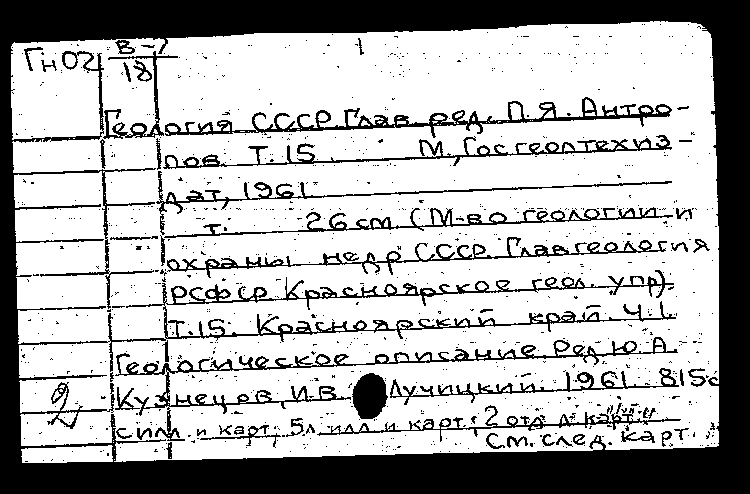 Гн02 В-7
18
1
Геология СССР. Глав. ред. П.Я. Антро-
пов. Т.15. М., Госгеолтехиз-
дат, 1961
т. 26 см. (М-во геологии и
охраны недр СССР. Главгеология
РСФСР. Красноярское геол. упр).
Т.15. Красноярский край. Ч.1.
Геологическое описание. Ред. Ю.А.
Кузнецов, И.В. Лучицкий. 1961. 815с
с илл. и карт.; 5л. илл. и карт.; 2 отд. л. карт.
См. след. карт.
2